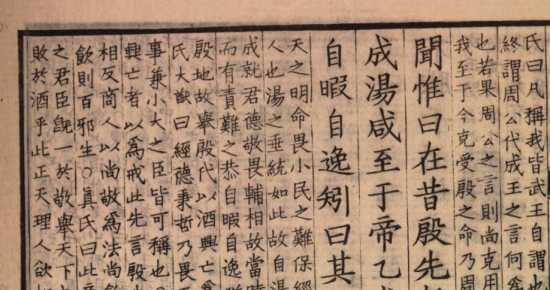 氏曰凡稱我皆武王自謂也
終謂周公代成王之言何爲
也若果周公之言則尚克用
我至于今克受殷之命乃周
聞惟曰在昔殷先
成湯咸至于帝乙
自暇自逸矧曰其
天之明命畏小民之難保經
人也湯之垂統如此故自湯
成就君德敬畏輔相故當時
而有責難之恭自暇自逸
殷地故舉殷代以酒興亡
氏大猷曰經德秉哲乃畏
事兼小大之臣皆可稱也
興亡者以爲戒此先言殷
相反商人以尚敬爲法尚
飮則百邪生○眞氏曰此
之君臣旣一於敬舉天下
敗於酒乎此正天理人欲